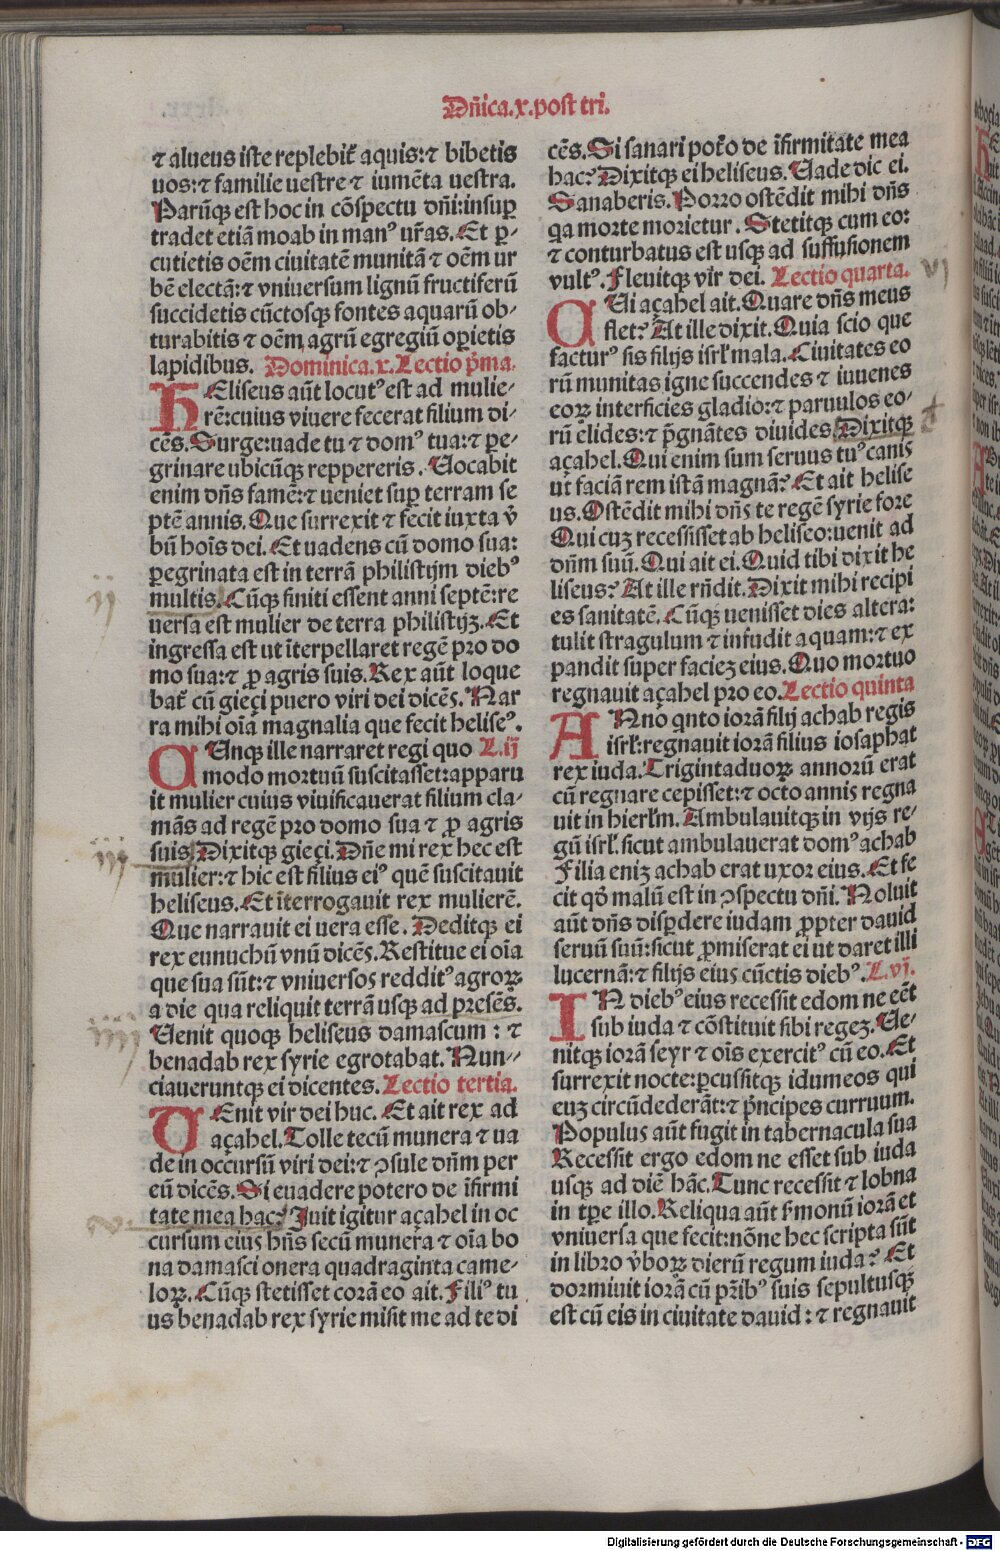 Dñica.x.post tri.
⁊ alueus iste replebit̃ aquis:⁊ bibetis
uos:⁊ familie uestre ⁊ iumẽta uestra.
Parũqꝫ est hoc in cõspectu dñi:insuꝑ
tradet etiã moab in manꝰ ur̃as. Et ꝑ-
cutietis oẽm ciuitatẽ munitã ⁊ oẽm ur
bẽ electã:⁊ vniuersum lignũ fructiferũ
succidetis cũctosqꝫ fontes aquarũ ob-
turabitis ⁊ oẽm agrũ egregiũ oꝑietis
lapidibus. Dominica.x.Lectio p̃ma.
HEliseus aũt locutꝰ est ad mulie-
rẽ:cuius viuere fecerat filium di-
cẽs.Surge:uade tu ⁊ domꝰ tua:⁊ ꝑe-
grinare ubicũqꝫ reppereris. Uocabit
enim dñs famẽ:⁊ ueniet suꝑ terram se
ptẽ annis.Que surrexit ⁊ fecit iuxta v̾
bũ hoĩs dei. Et uadens cũ domo sua:
ꝑegrinata est in terrã philistijm diebꝰ
multis. Cũqꝫ finiti essent anni septẽ:re
uersa est mulier de terra philistijꝫ. Et
ingressa est ut ĩterpellaret regẽ pro do
mo sua:⁊ ꝓ agris suis.Rex aũt loque
bat̃ cũ gieçi puero viri dei dicẽs. Nar
ra mihi oĩa magnalia que fecit heliseꝰ.
CUnqꝫ ille narraret regi quo L.ij
modo mortuũ suscitasset:apparu
it mulier cuius viuificauerat filium cla-
mãs ad regẽ pro domo sua ⁊ ꝓ agris
suis. Dixitqꝫ gieçi.Dñe mi rex hec est
mulier:⁊ hic est filius eiꝰ quẽ suscitauit
heliseus. Et ĩterrogauit rex mulierẽ.
Que narrauit ei uera esse. Deditqꝫ ei
rex eunuchũ vnũ dicẽs.Restitue ei oĩa
que sua sũt:⁊ vniuersos redditꝰ agroꝝ
a die qua reliquit terrã usqꝫ ad presẽs.
Uenit quoqꝫ heliseus damascum : ⁊
benadab rex syrie egrotabat. Nun-
ciaueruntqꝫ ei dicentes. Lectio tertia.
UEnit vir dei huc. Et ait rex ad
açahel.Tolle tecũ munera ⁊ ua
de in occursũ viri dei:⁊ ꝯsule dñm per
eũ dicẽs.Si euadere potero de ĩfirmi
tate mea hac? Juit igitur açahel in oc
cursum eius hñs secũ munera ⁊ oĩa bo
na damasci onera quadraginta came-
loꝝ. Cũqꝫ stetisset corã eo ait. Filiꝰ tu
us benadab rex syrie misit me ad te di
cẽs.Si sanari pot̾o de ĩfirmitate mea
hac? Dixitqꝫ ei heliseus.Uade dic ei.
Sanaberis. Porro ostẽdit mihi dñs
qa morte morietur. Stetitqꝫ cum eo:
⁊ conturbatus est usqꝫ ad suffusionem
vultꝰ. Fleuitqꝫ vir dei. Lectio quarta.
CUi açahel ait.Quare dñs meus
flet? At ille dixit.Quia scio que
facturꝰ sis filijs isrl̃ mala.Ciuitates eo
rũ munitas igne succendes ⁊ iuuenes
eoꝝ interficies gladio:⁊ paruulos eo-
rũ elides:⁊ p̃gnãtes diuides. Dixitqꝫ
açahel.Qui enim sum seruus tuꝰ canis
ut faciã rem istã magnã? Et ait helise
us.Ostẽdit mihi dñs te regẽ syrie fore
Qui cuꝫ recessisset ab heliseo:uenit ad
dñm suũ.Qui ait ei.Quid tibi dixit he
liseus? At ille rñdit.Dixit mihi recipi
es sanitatẽ. Cũqꝫ uenisset dies altera:
tulit stragulum ⁊ infudit aquam:⁊ ex
pandit super facieꝫ eius.Quo mortuo
regnauit açahel pro eo.Lectio quinta
ANno qnto iorã filij achab regis
isrl̃:regnauit iorã filius iosaphat
rex iuda.Trigintaduoꝝ annorũ erat
cũ regnare cepisset:⁊ octo annis regna
uit in hierl̃m. Ambulauitqꝫ in vijs re-
gũ isrl̃.sicut ambulauerat domꝰ achab
Filia eniꝫ achab erat uxor eius. Et fe
cit qð malũ est in ꝯspectu dñi. Noluit
aũt dñs disꝑdere iudam ꝓpter dauid
seruũ suũ:sicut ꝓmiserat ei ut daret illi
lucernã:⁊ filijs eius cũctis diebꝰ. L.vj.
IN diebꝰ eius recessit edom ne eẽt
sub iuda ⁊ cõstituit sibi regeꝫ. Ue-
nitqꝫ iorã seyr ⁊ oĩs exercitꝰ cũ eo. Et
surrexit nocte:ꝑcussitqꝫ idumeos qui
euꝫ circũdederãt:⁊ p̃ncipes curruum.
Populus aũt fugit in tabernacula sua
Recessit ergo edom ne esset sub iuda
usqꝫ ad diẽ hãc.Tunc recessit ⁊ lobna
in tꝑe illo.Reliqua aũt s̾monũ iorã et
vniuersa que fecit:nõne hec scripta sũt
in libro v̾boꝝ dierũ regum iuda? Et
dormiuit iorã cũ pr̃ibꝰ suis sepultusqꝫ
est cũ eis in ciuitate dauid : ⁊ regnauit
ij
iij
iiij
v.
vj
Digitalisierung gefördert durch die Deutsche Forschungsgemeinschaft - DFG